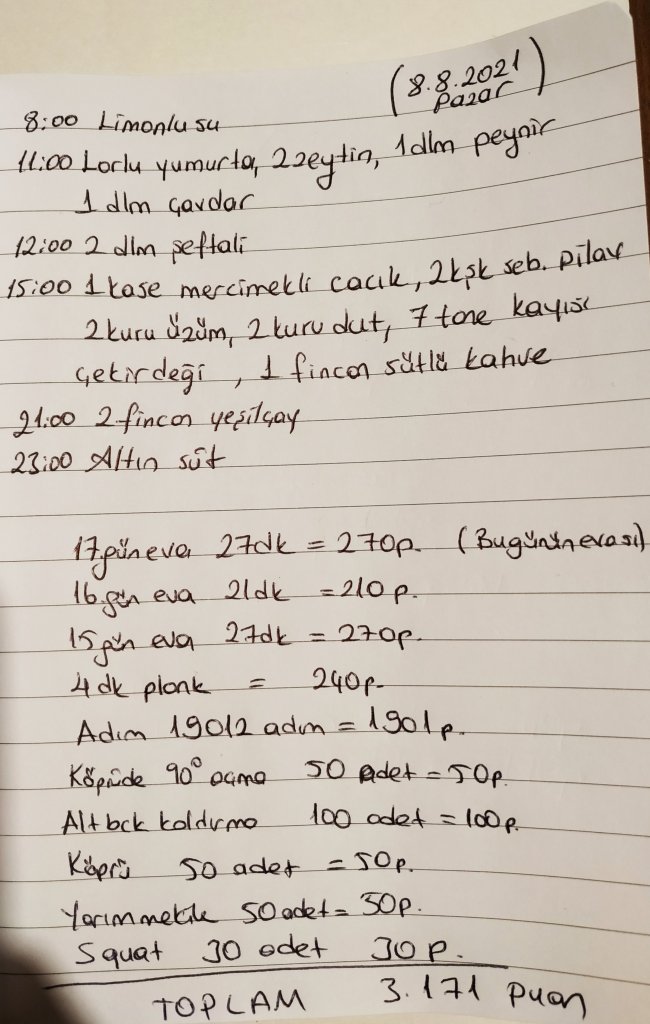 (8.8.2021
Pazar)
8:00 Limonlu su
11:00 Lorlu yumurta, 2 zeytin, 1 dlm peynir
1 dlm çavdar
12:00 2 dlm şeftali
15:00 1 kase mercimekli cacık, 2 kşk seb. pilav
2 kuru üzüm, 2 kuru dut, 7 tane kayısı
çekirdeği, 1 fincan sütlü kahve
21:00 2 fincan yeşilçay
23:00 Altın süt
17.gün eva 27dk = 270p. (Bugünün evası)
16.gün eva 21dk = 210p.
15 gün eva 27dk = 270p.
4 dk plank = 240p.
Adım 19012 adım = 1901p.
Köprüde 90° açma 50 adet = 50p.
Alt bck kaldırma 100 adet = 100p.
Köprü 50 adet = 50p.
Yarım mekik 50 adet = 50p.
Squat 30 adet 30p.
TOPLAM 3.171 puan